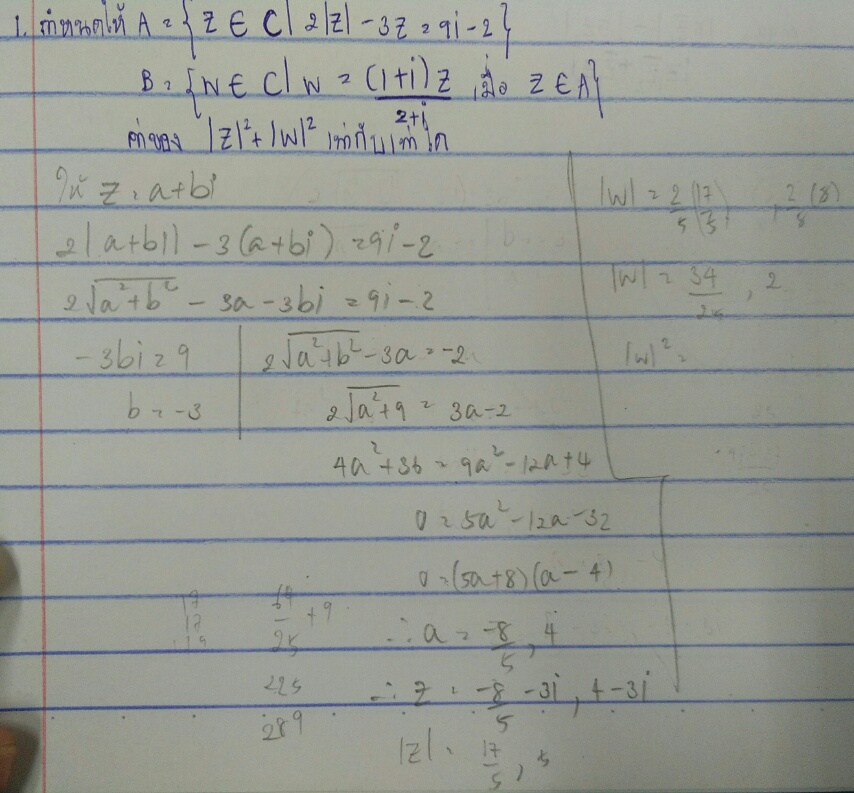 1. กำหนดให้ A = { Z ∈ C | 2|Z| - 3Z = 9i - 2 }
B = { W ∈ C | W = (1+i)Z / 2+i เมื่อ Z ∈ A }
ค่าของ |Z|² + |W|² เท่ากับเท่าใด
ให้ Z = a+bi
2|a+bi| - 3(a+bi) = 9i - 2
2√a²+b² - 3a - 3bi = 9i - 2
-3bi = 9
b = -3
2√a²+b² - 3a = -2
2√a²+9 = 3a-2
4a²+36 = 9a²-12a+4
0 = 5a²-12a-32
0 = (5a+8)(a-4)
∴ a = -8/5, 4
∴ Z = -8/5 -3i, 4-3i
|Z| = 17/5, 5
64/25 + 9
225
289
17
17
|W| = 2/5 (17/5), 2/8 (8)
|W| = 34/25, 2
|W|² =